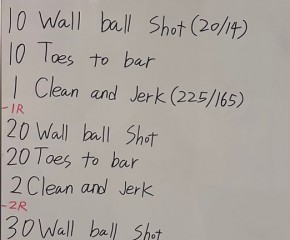 10 Wall ball Shot (20/14)
10 Toes to bar
1 Clean and Jerk (225/165)
-1R
20 Wall ball Shot
20 Toes to bar
2 Clean and Jerk
-2R
30 Wall ball Shot